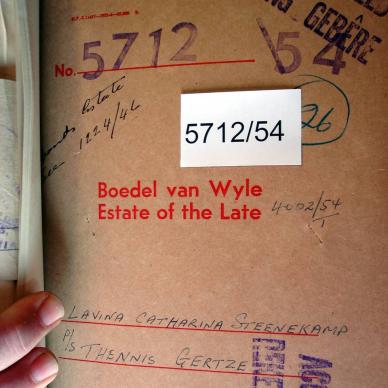 No. 5712 / 54
GEBÊRE
Estate
1224/46
5712/54
26
Boedel van Wyle
Estate of the Late
4002/54
1
LAVINA CATHARINA STEENEKAMP
P/S THENNIS GERTZE